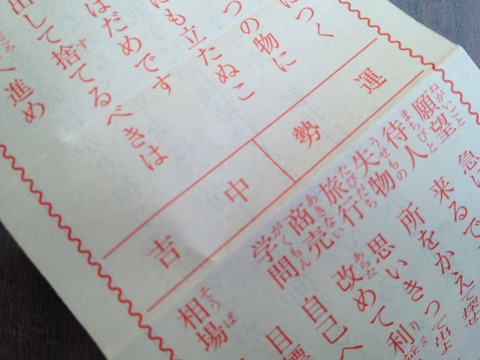 につく
つの物に
にも立たぬこ
はだめです
出して捨てるべきは
く進め
運勢
中吉
願望 急に
待人 来るで
失物 所をかえて
旅行 思いきって出
商売 改めて利
学問 自己へ
相場 目標